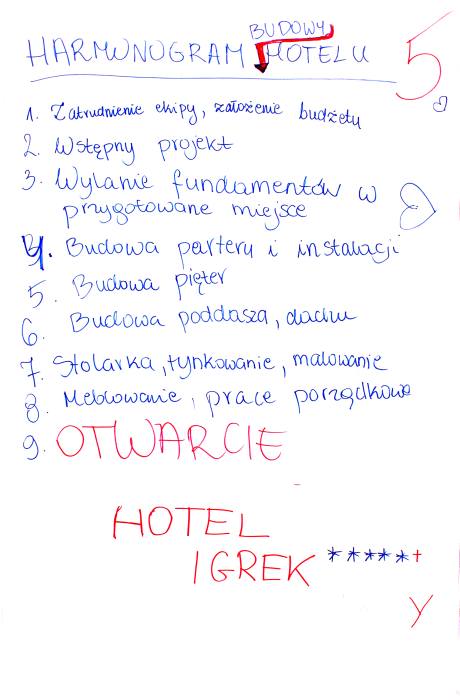 HARMONOGRAM BUDOWY HOTELU
5
1. Zatrudnienie ekipy, założenie budżetu
2. Wstępny projekt
3. Wylanie fundamentów w
przygotowane miejsce
4. Budowa parteru i instalacji
5. Budowa pięter
6. Budowa poddasza, dachu
7. Stolarka, tynkowanie, malowanie
8. Meblowanie, prace porządkowe
9. OTWARCIE
HOTEL
IGREK *****+
Y